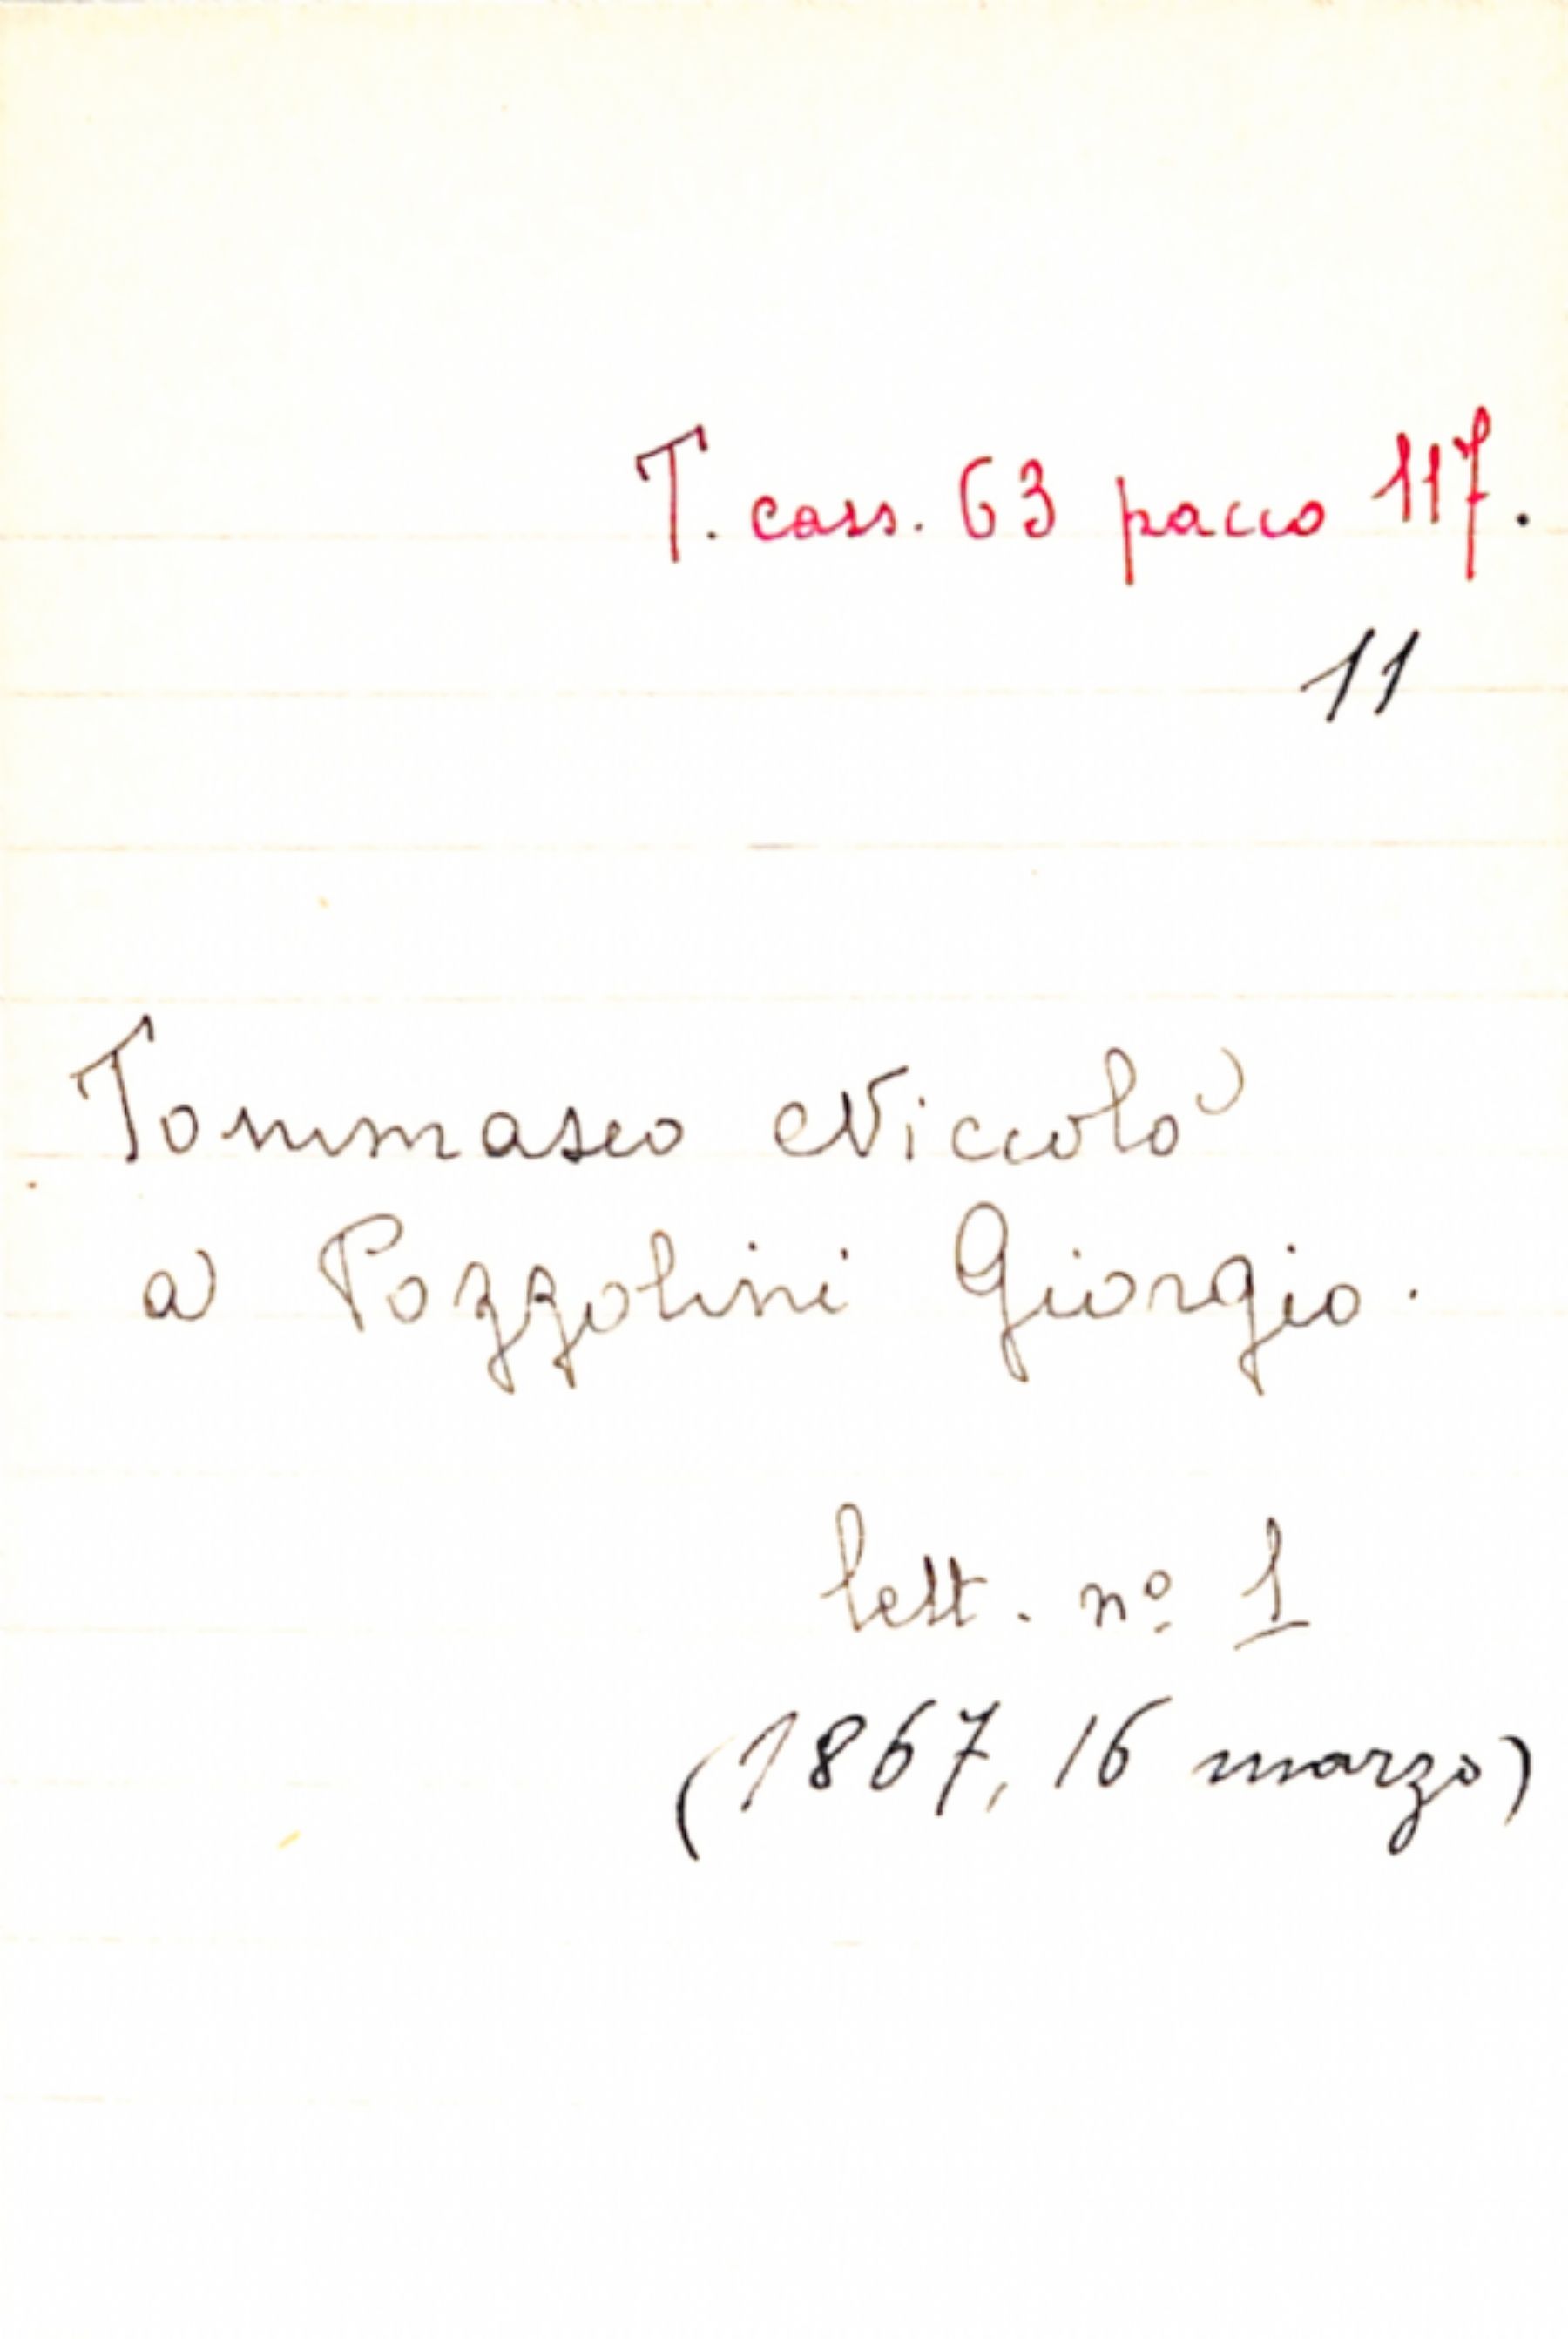 T. cass. 63 pacco 117.
11
Tommaseo Niccolò
a Pozzolini Giorgio.
lett. nº 1
(1867, 16 marzo)